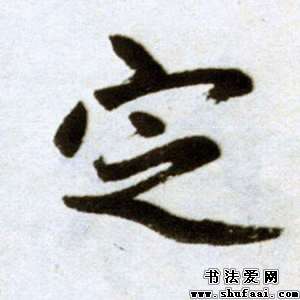 定
书法爱网
www.shufaai.com